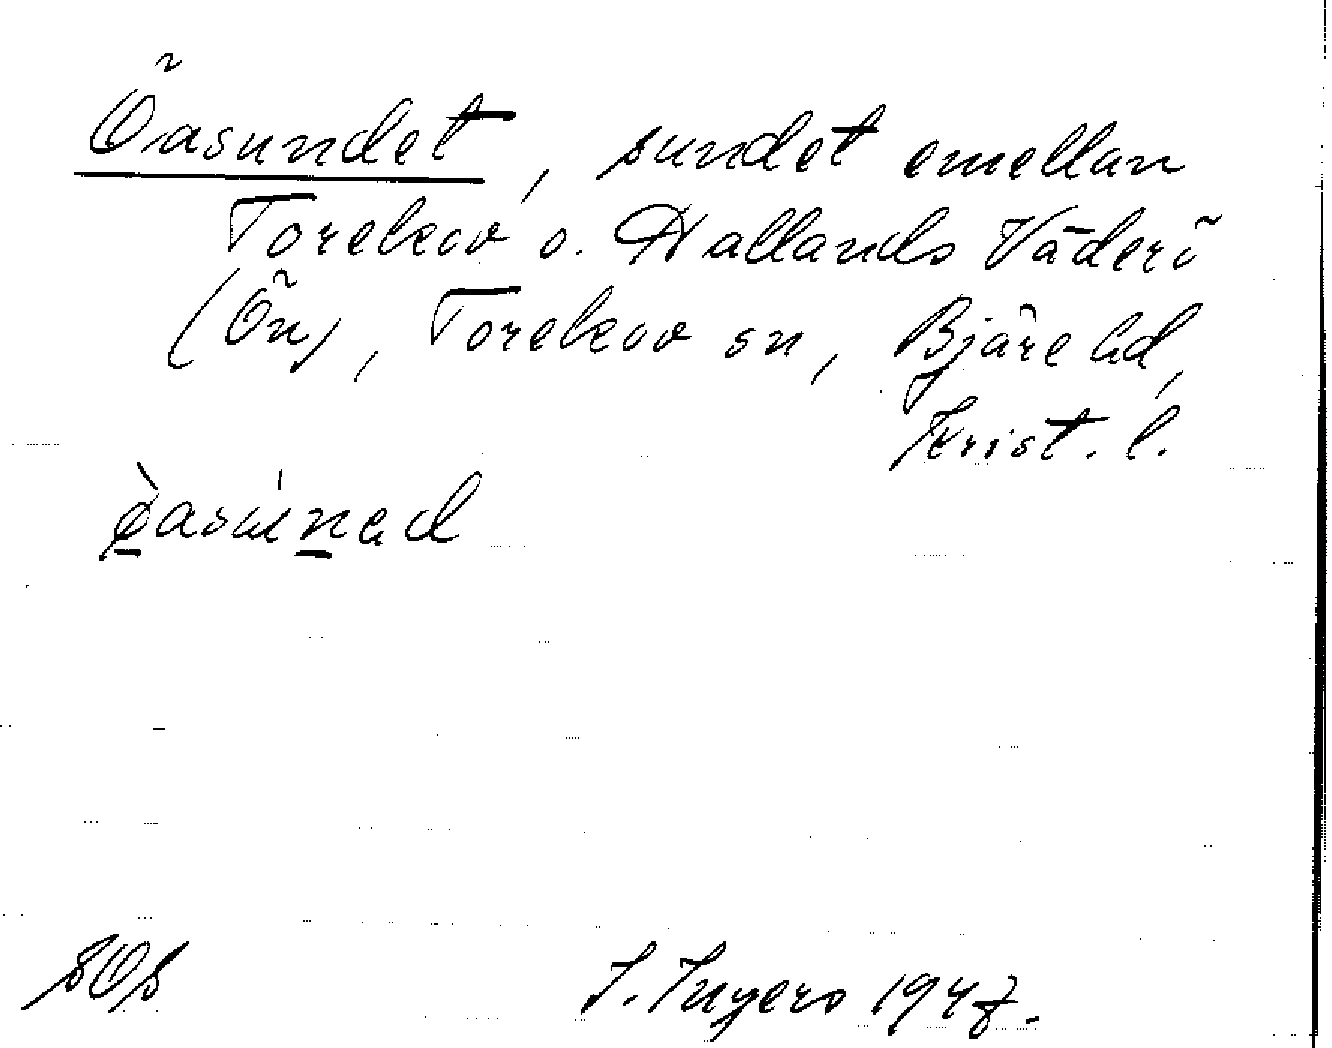 Öasundet, sundet emellan
Torekov o. Hallands Väderö
(Ön), Torekov sn, Bjäre hd,
Krist. l.
SOS I. Ingers 1947.